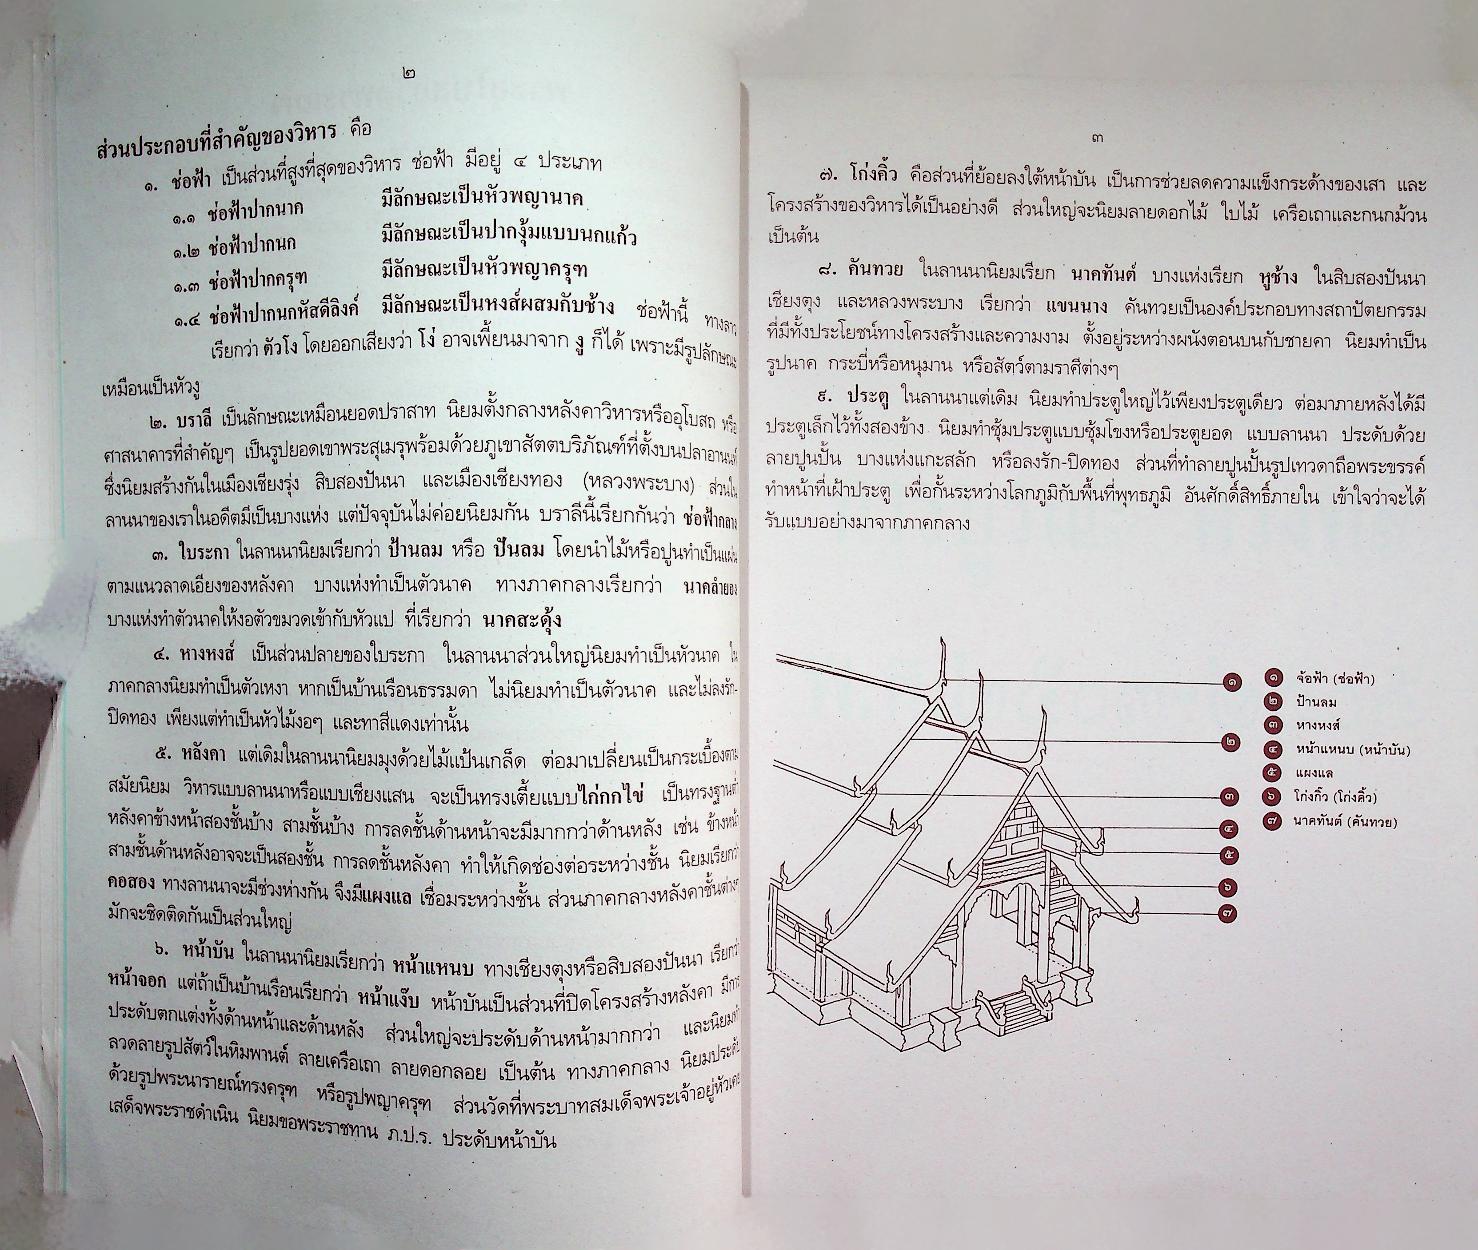 ๒
ส่วนประกอบที่สำคัญของวิหาร คือ
๑. ช่อฟ้า เป็นส่วนที่สูงที่สุดของวิหาร ช่อฟ้า มีอยู่ ๔ ประเภท
๑.๑ ช่อฟ้าปากนาค มีลักษณะเป็นหัวพญานาค
๑.๒ ช่อฟ้าปากนก มีลักษณะเป็นปากงุ้มแบบนกแก้ว
๑.๓ ช่อฟ้าปากครุฑ มีลักษณะเป็นหัวพญาครุฑ
๑.๔ ช่อฟ้าปากนกหัสดีลิงค์ มีลักษณะเป็นหงส์ผสมกับช้าง ช่อฟ้านี้ ทางลาว
เรียกว่า ตัวโง โดยออกเสียงว่า โง่ อาจเพี้ยนมาจาก งู ก็ได้ เพราะมีรูปลักษณะ
เหมือนเป็นหัวงู
๒. บราลี เป็นลักษณะเหมือนยอดปราสาท นิยมตั้งกลางหลังคาวิหารหรืออุโบสถ หรือ
ศาสนาคารที่สำคัญๆ เป็นรูปยอดเขาพระสุเมรุพร้อมด้วยภูเขาสัตตบริภัณฑ์ที่ตั้งบนปลาอานนท์
ซึ่งนิยมสร้างกันในเมืองเชียงรุ่ง สิบสองปันนา และเมืองเชียงทอง (หลวงพระบาง) ส่วนใน
ลานนาของเราในอดีตมีเป็นบางแห่ง แต่ปัจจุบันไม่ค่อยนิยมกัน บราลีนี้เรียกกันว่า ช่อฟ้ากลาง
๓. ใบระกา ในลานนานิยมเรียกว่า ป้านลม หรือ ปันลม โดยนำไม้หรือปูนทำเป็นแผ่น
ตามแนวลาดเอียงของหลังคา บางแห่งทำเป็นตัวนาค ทางภาคกลางเรียกว่า นาคลำยอง
บางแห่งทำตัวนาคให้งอตัวขมวดเข้ากับหัวแป ที่เรียกว่า นาคสะดุ้ง
๔. หางหงส์ เป็นส่วนปลายของใบระกา ในลานนาส่วนใหญ่นิยมทำเป็นหัวนาค ใน
ภาคกลางนิยมทำเป็นตัวเหงา หากเป็นบ้านเรือนธรรมดา ไม่นิยมทำเป็นตัวนาค และไม่ลงรัก-
ปิดทอง เพียงแต่ทำเป็นหัวไม้งอๆ และทาสีแดงเท่านั้น
๕. หลังคา แต่เดิมในลานนานิยมมุงด้วยไม้แป้นเกล็ด ต่อมาเปลี่ยนเป็นกระเบื้องตาม
สมัยนิยม วิหารแบบลานนาหรือแบบเชียงแสน จะเป็นทรงเตี้ยแบบไก่กกไข่ เป็นทรงฐานต่ำ
หลังคาช้างหน้าสองชั้นบ้าง สามชั้นบ้าง การลดชั้นด้านหน้าจะมีมากกว่าด้านหลัง เช่น ข้างหน้า
สามชั้นด้านหลังอาจจะเป็นสองชั้น การลดชั้นหลังคา ทำให้เกิดช่องต่อระหว่างชั้น นิยมเรียกว่า
คอสอง ทางลานนาจะมีช่วงห่างกัน จึงมีแผงแล เชื่อมระหว่างชั้น ส่วนภาคกลางหลังคาชั้นต่างๆ
มักจะชิดติดกันเป็นส่วนใหญ่
๖. หน้าบัน ในลานนานิยมเรียกว่า หน้าแหนบ ทางเชียงตุงหรือสิบสองปันนา เรียกว่า
หน้าจอก แต่ถ้าเป็นบ้านเรือนเรียกว่า หน้าแง๊บ หน้าบันเป็นส่วนที่ปิดโครงสร้างหลังคา มีการ
ประดับตกแต่งทั้งด้านหน้าและด้านหลัง ส่วนใหญ่จะประดับด้านหน้ามากกว่า และนิยมทำ
ลวดลายรูปสัตว์ในหิมพานต์ ลายเครือเถา ลายดอกลอย เป็นต้น ทางภาคกลาง นิยมประดับ
ด้วยรูปพระนารายณ์ทรงครุฑ หรือรูปพญาครุฑ ส่วนวัดที่พระบาทสมเด็จพระเจ้าอยู่หัวเคย
เสด็จพระราชดำเนิน นิยมขอพระราชทาน ภ.ป.ร. ประดับหน้าบัน
๓
๗. โก่งคิ้ว คือส่วนที่ย้อยลงใต้หน้าบัน เป็นการช่วยลดความแข็งกระด้างของเสา และ
โครงสร้างของวิหารได้เป็นอย่างดี ส่วนใหญ่จะนิยมลายดอกไม้ ใบไม้ เครือเถาและกนกม้วน
เป็นต้น
๘. คันทวย ในลานนานิยมเรียก นาคทันต์ บางแห่งเรียก หูช้าง ในสิบสองปันนา
เชียงตุง และหลวงพระบาง เรียกว่า แขนนาง คันทวยเป็นองค์ประกอบทางสถาปัตยกรรม
ที่มีทั้งประโยชน์ทางโครงสร้างและความงาม ตั้งอยู่ระหว่างผนังตอนบนกับชายคา นิยมทำเป็น
รูปนาค กระบี่หรือหนุมาน หรือสัตว์ตามราศีต่างๆ
๙. ประตู ในลานนาแต่เดิม นิยมทำประตูใหญ่ไว้เพียงประตูเดียว ต่อมาภายหลังได้มี
ประตูเล็กไว้ทั้งสองข้าง นิยมทำซุ้มประตูแบบซุ้มโขงหรือประตูยอด แบบลานนา ประดับด้วย
ลายปูนปั้น บางแห่งแกะสลัก หรือลงรัก-ปิดทอง ส่วนที่ทำลายปูนปั้นรูปเทวดาถือพระขรรค์
ทำหน้าที่เฝ้าประตู เพื่อกั้นระหว่างโลกภูมิกับพื้นที่พุทธภูมิ อันศักดิ์สิทธิ์ภายใน เข้าใจว่าจะได้
รับแบบอย่างมาจากภาคกลาง
๑
๒
๓
๔
๕
๖
๗
๑ จ้อฟ้า (ช่อฟ้า)
๒ ป้านลม
๓ หางหงส์
๔ หน้าแหนบ (หน้าบัน)
๕ แผงแล
๖ โก่งกิ๊ว (โก่งคิ้ว)
๗ นาคทันต์ (คันทวย)